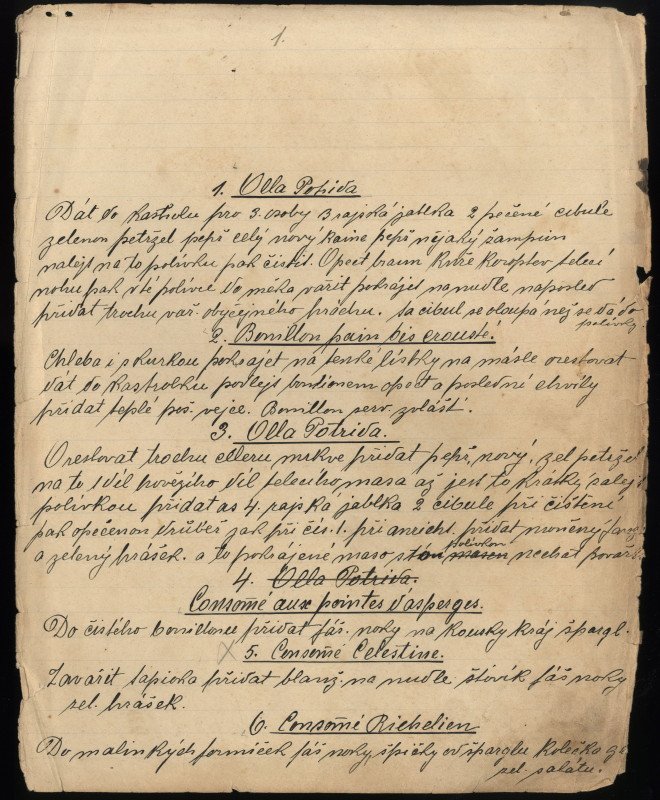 1.
1. Olla Potrida
Dát do kastrolu pro 3. osoby 3 rajská jablka 2 pečené cibule
zelenou petržel pepř celý nový pepř nějaký šampion
nalejt na to polívku pak čistit. Opect kuře koroptev telecí
nohu pak v té polívce do měka vařit pokrájet na nudle naposled
přidat trochu vař. obyčejného hrachu. ta cibul se oloupá než se dá do
polívky
2. Bouillon pain bis crousté.
Chleba i s kurkou pokrajet na tenké lístky na másle orestovat
dát do kastrolku podlejt bouillonem opect a poslední chvíly
přidat teplé poš. vejce. Bouillon serv. zvlášť.
3. Olla Potrida.
Orestovat trochu celleru mrkve přidat pepř, nový, zel petržel
na to 1 díl hovězího díl telecího masa až jest to krátky zalejt
polívkou přidat as 4. rajská jablka 2 cibule při čištění
pak opečenou drůbež jak při čís. 1. při anricht. přidat močený
a zelený hrášek. a to pokrajené maso s polívkou nechat povařit
4. Olla Potrida.
Consomé aux pointes d'asperges.
Do čistého bouillonu přidat fáš. noky na kousky kráj špargl.
5. Consomé Celestine.
Zavářit tapioka přidat blanž. na nudle štovík fáš noky
zel. hrášek.
6. Consomé Richelieu
Do malinkých formiček fáš noky, špičky od šparglu kolečka
zel. salátu.